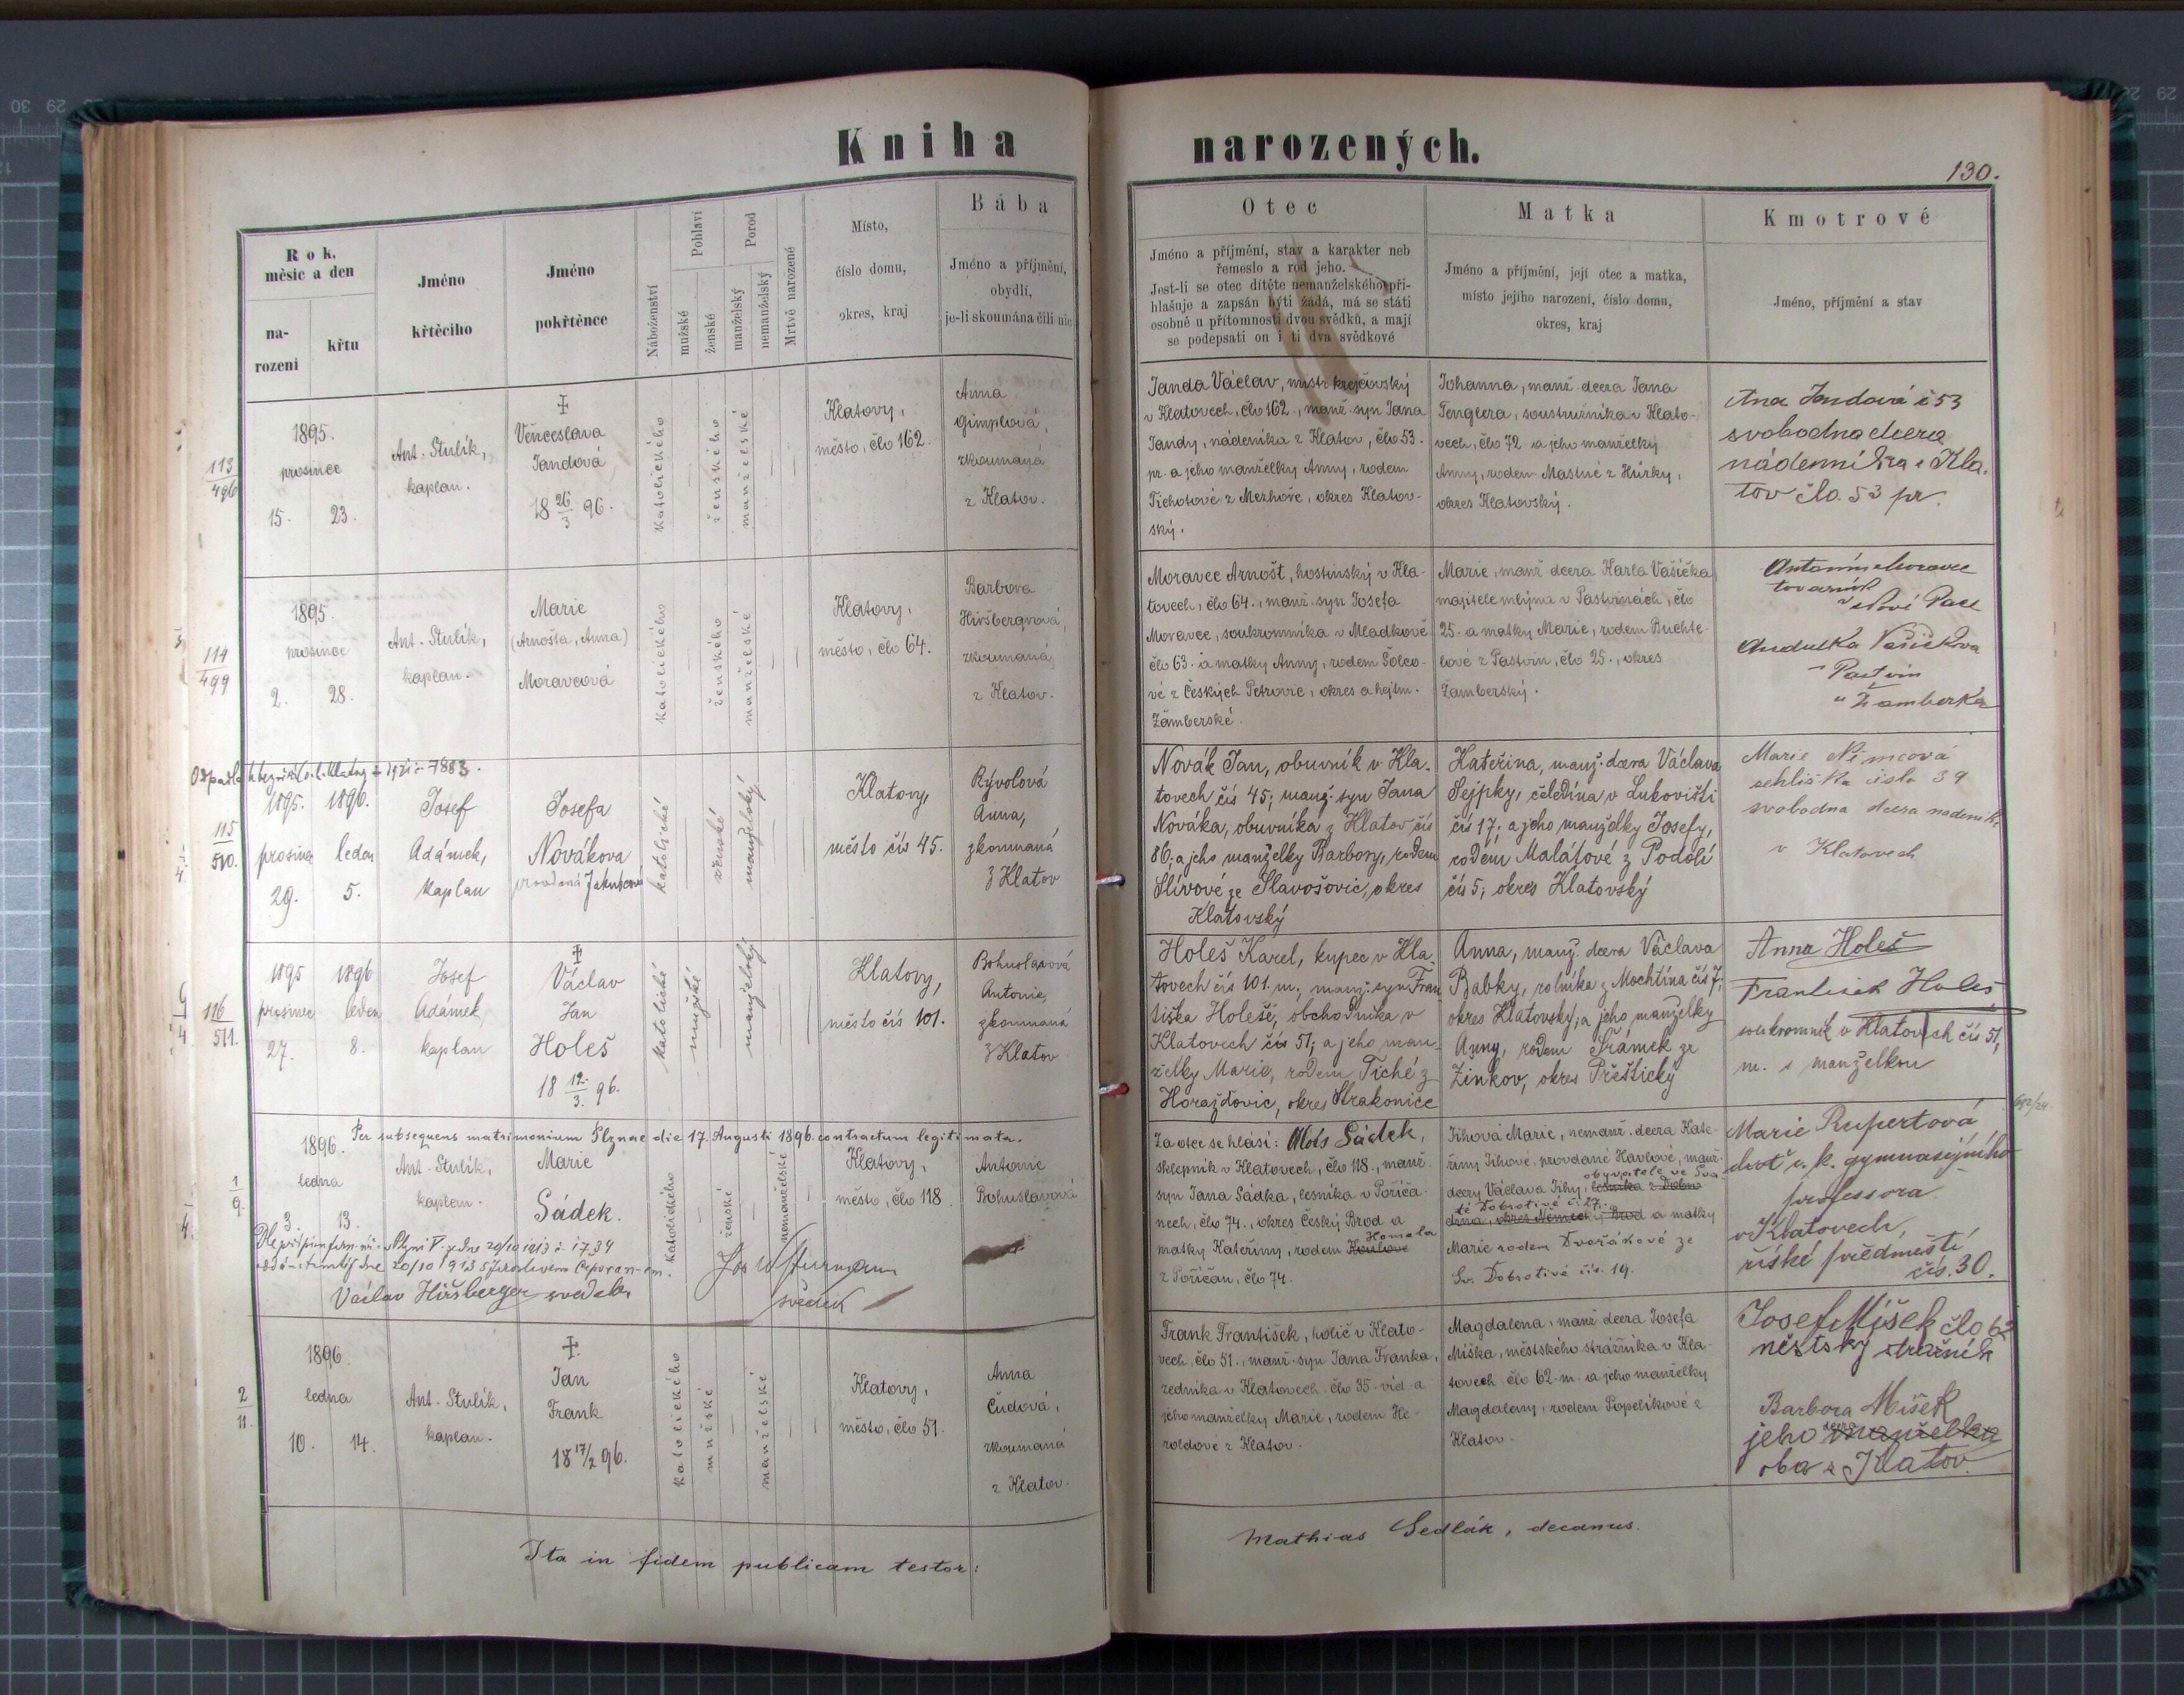 Kniha narozených.
130.
Rok, měsíc a den
narození
křtu
Jméno křtěcího
Jméno pokřtěnce
Náboženství
Pohlaví
mužské
ženské
Porod
manželský
nemanželský
Mrtvě narozené
Místo,
číslo domu,
okres, kraj
Bába
Jméno a příjmění,
obydlí,
je-li zkoumána čili nic
Otec
Jméno a příjmění, stav a karakter neb
řemeslo a rod jeho.
Jest-li se otec dítěte nemanželského při-
hlašuje a zapsán býti žádá, má se státi
osobně u přítomnosti dvou svědků, a mají
se podepsati on i ti dva svědkové
Matka
Jméno a příjmění, její otec a matka,
místo jejího narození, číslo domu,
okres, kraj
Kmotrové
Jméno, příjmění a stav
113
496
1895.
prosince
15. 23.
Ant. Stulík,
kaplan.
Věnceslava
Jandová
18 26/3 96.
katolického
ženského
manželské
Klatovy,
město, člo 162.
Anna
Gimplová,
zkoumaná
z Klatov.
Janda Václav, mistr krejčovský
v Klatovech, člo 162., manž. syn Jana
Jandy, nádeníka z Klatov, člo 53.
pr. a jeho manželky Anny, rodem
Tichotové z Mezhoře, okres Klatov-
ský.
Johanna, manž. dcera Jana
Tenglera, soustružníka v Klato-
vech, člo 72 a jeho manželky
Anny, rodem Mastné z Hůrky,
okres Klatovský.
Ana Jandová č 53
svobodna dcera
nádenníka z Kla-
tov člo. 53 pr.
114
499
1895.
prosince
2. 28.
Ant. Stulík,
kaplan.
Marie
(Arnošta, Anna)
Moravcová
katolického
ženského
manželské
Klatovy,
město, člo 64.
Barbora
Hiršbergrová,
zkoumaná
z Klatov.
Moravec Arnošt, hostinský v Kla-
tovech, člo 64., manž. syn Josefa
Moravce, soukromníka v Mladkově
člo 63. a matky Anny, rodem Šolco-
vé z Českých Petrovic, okres a hejtm.
Žamberské.
Marie, manž. dcera Karla Vašíčka
majitele mlýna v Pastvinách, člo
25. a matky Marie, rodem Buchte-
lové z Pastvin, člo 25., okres
Žamberský.
Antonín Moravec
továrník
Nové Pace
Andulka Vašíčkova
Pastvin
u Žamberka
115
510.
1895. 1896.
prosince leden
29. 5.
Josef
Adámek,
kaplan
Josefa
Novákova
provdaná
katolické
ženské
manželský
Klatovy,
město čís 45.
Rývolová
Anna,
zkoumaná
z Klatov
Novák Jan, obuvník v Kla-
tovech čís 45; manž. syn Jana
Nováka, obuvníka z Klatov čís
86; a jeho manželky Barbory, rodem
Slívové ze Slavošovic, okres
Klatovský
Kateřina, manž. dcera Václava
Sejpky, čeledína v Lukovišti
čís 17; a jeho manželky Josefy,
rodem Malátové z Podolí
čís 5; okres Klatovský
Marie Nimcová
číslo 39
svobodna dcera
v Klatovech
116
511.
1895 1896
prosince leden
27. 8.
Josef
Adámek
kaplan
Václav
Jan
Holeš
18 12/3. 96.
katolické
mužské
manželský
Klatovy,
město čís 101.
Bohuslavová
Antonie,
zkoumaná
z Klatov
Holeš Karel, kupec v Kla-
tovech čís 101. m.; manž. syn Fran-
tiška Holeše, obchodníka v
Klatovech čís 51; a jeho man-
želky Marie, rodem Tiché z
Horažďovic, okres Strakonice
Anna, manž. dcera Václava
Babky, rolníka z Mochtína čís 7,
okres Klatovský; a jeho manželky
Anny, rodem Šrámek ze
Žinkov, okres Přeštický
Anna Holeš
František Holeš
soukromník v Klatovech čís 51,
m. s manželkou
1
9.
1896. Per subsequens matrimonium Plznae die 17. Augusti 1896. contractum legitimata.
ledna
3. 13.
Ant. Stulík,
kaplan.
Marie
Sádek.
katolického
ženské
nemanželské
Klatovy,
město, člo 118
Antonie
Bohuslavová
Václav Hiršberger svědek
svědek
Za otce se hlásí: Alois Sádek,
sklepník v Klatovech, člo 118., manž.
syn Jana Sádka, lesníka v Poříča-
nech, člo 74., okres Český Brod a
matky Kateřiny, rodem Homola
z Poříčan, člo 74.
Jíhová Marie, nemanž. dcera Kate-
řiny Jíhové, provdané Havlové, manž.
dcery Václava Jíhy, obyvatele ve Sva-
té Dobrotivé č. 27. a matky
Marie rodem Dvořákové ze
Sv. Dobrotivé čís. 19.
Marie Rupertová
choť c. k. gymnasijního
professora
v Klatovech,
říšské předměstí
čís. 30.
2
11.
1896.
ledna
10. 14.
Ant. Stulík,
kaplan.
Jan
Frank
18 17/2 96.
katolického
mužské
manželské
Klatovy,
město, člo 51.
Anna
Čudová,
zkoumaná
z Klatov.
Frank František, holič v Klato-
vech, člo 51., manž. syn Jana Franka,
zedníka v Klatovech, člo 35. víd. a
jeho manželky Marie, rodem He-
roldové z Klatov.
Magdalena, manž. dcera Josefa
Míška, městského strážníka v Kla-
tovech člo 62. m. a jeho manželky
Magdaleny, rodem Popelíkové z
Klatov.
Josef Míšek člo 62
městský strážník
Barbora Míšek
jeho dcera
oba z Klatov.
Ita in fidem publicam testor:
Mathias Sedlák, decanus.